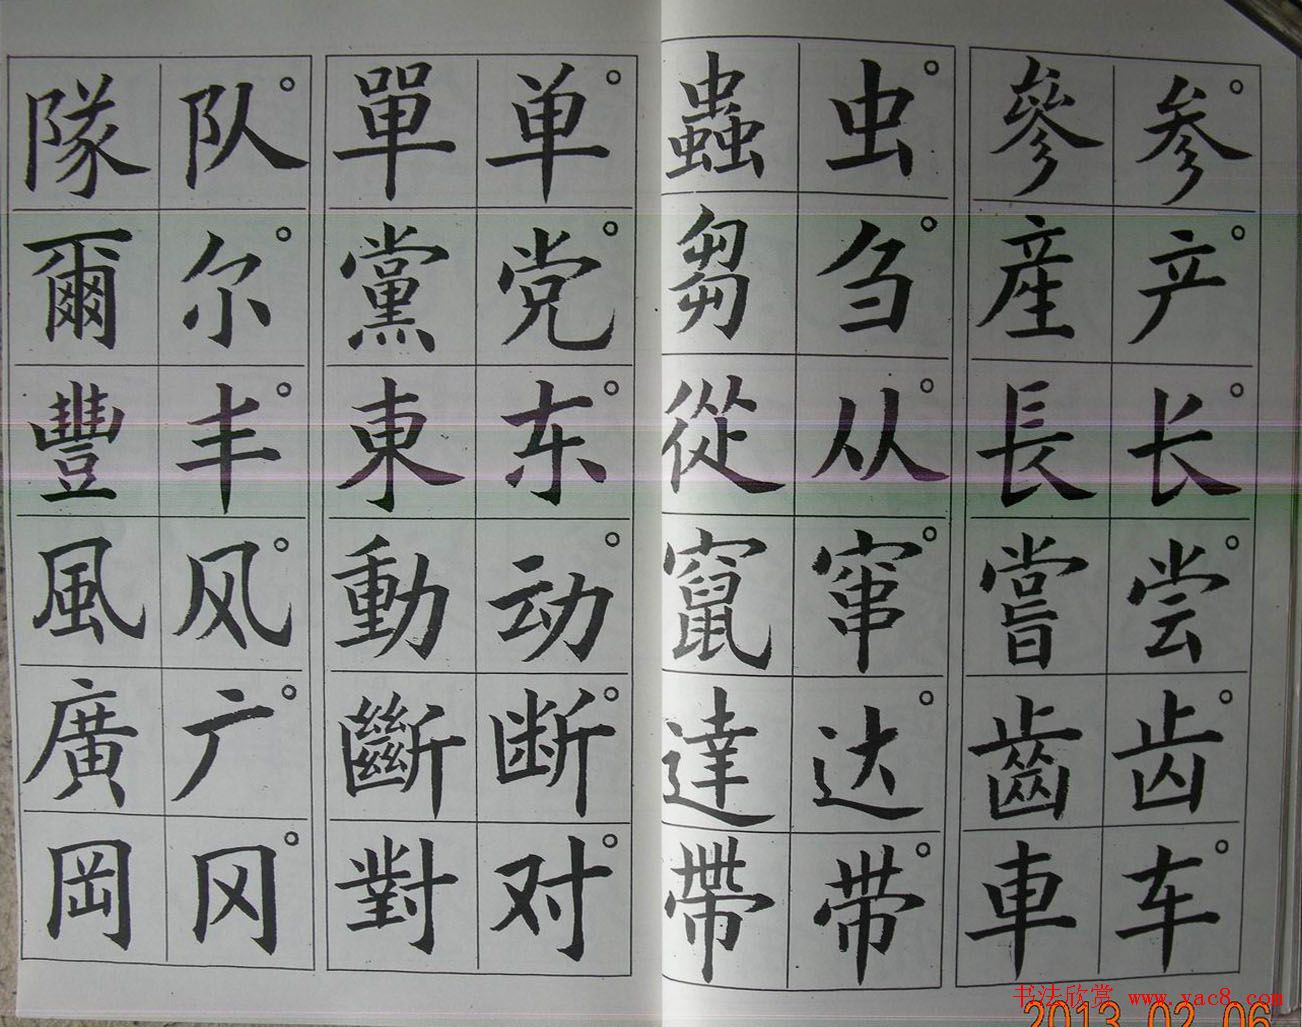 参产长尝齿车
參產長嘗齒車
虫刍从窜达带
蟲芻從竄達帶
单党东动断对
單黨東動斷對
队尔丰风广冈
隊爾豐風廣岡
书法欣赏 www.yac8.com
2013.02.06